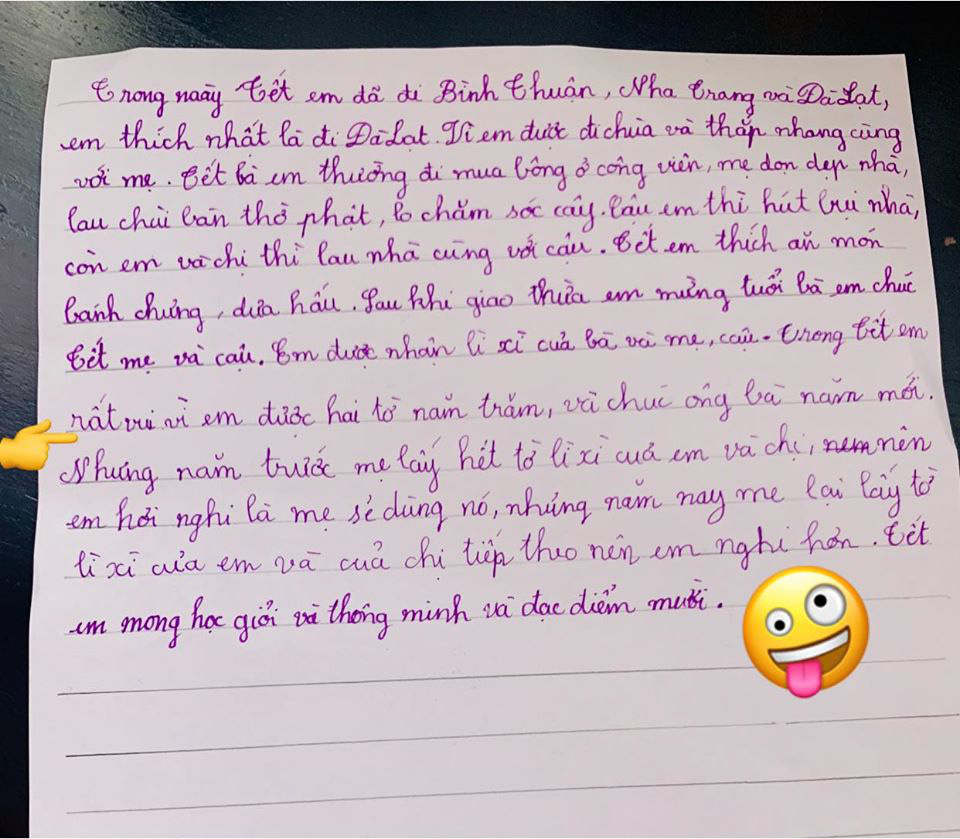 Trong naày Tết em đã đi Bình Thuận, Nha Trang và Đà Lạt,
em thích nhất là đi Đà Lạt. Vì em được đi chùa và thắp nhang cùng
với mẹ. Tết bà em thường đi mua bông ở công viên, mẹ dọn dẹp nhà,
lau chùi bàn thờ phật, lo chăm sóc cây. Cậu em thì hút bụi nhà,
còn em và chị thì lau nhà cùng với cậu. Tết em thích ăn món
bánh chưng, dưa hấu. Sau khi giao thừa em mừng tuổi bà em chúc
Tết mẹ và cậu. Em được nhận lì xì của bà và mẹ, cậu. Trong Tết em
rất vui vì em được hai tờ năm trăm, và chúc ông bà năm mới.
Nhưng năm trước mẹ lấy hết tờ lì xì cuả em và chị, nem nên
em hơi nghi là mẹ sẻ dùng nó, nhưng năm nay mẹ lại lấy tờ
lì xì của em và cuả chị tiếp theo nên em nghi hơn. Tết
em mong học giỏi và thông minh và đạc điểm mười.